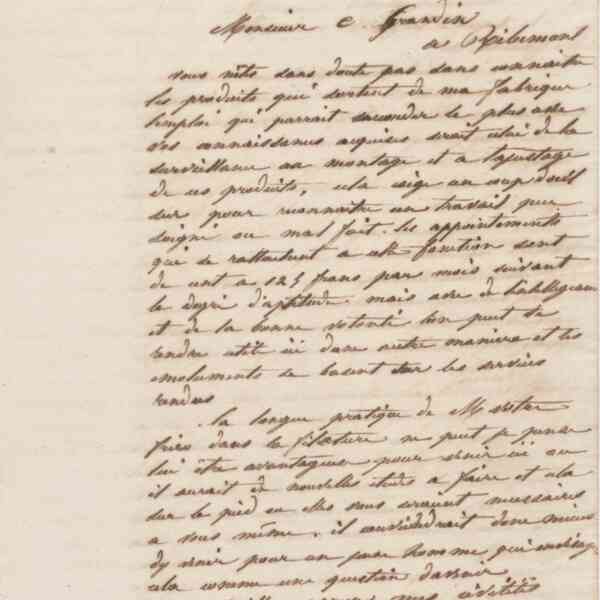 Monsieur C. Grandin
a Ribemont
vous n'êtes sans doute pas sans connaitre
les produits qui sortent de ma fabrique
l'emploi qui parrait seconder le plus avec
vos connaissances acquises serait celui de la
surveillance au montage et a l'ajustage
de ces produits, cela exige un coup d'œil
sur pour reconnaitre un travail peu
soigné ou mal fait. les appointements
qui se rattachent a cette fonction sont
de cent a 125 francs par mois suivant
le degré d'aptitude. mais avec de l'intelligence
et de la bonne volonté l'on peut se
rendre utile ici d'une autre maniere et les
emoluments se basent sur les services
rendus
la longue pratique de M votre
frère dans la filature ne peut je pense
lui être avantageuse pour venir ici ou
il aurait de nouvelles etudes a faire et cela
sur le pied ou elles vous seraient necessaires
a vous même. il conviendrait donc mieux
d'y venir pour un jeune homme qui envisage
cela comme une question d'avenir
mes civilités